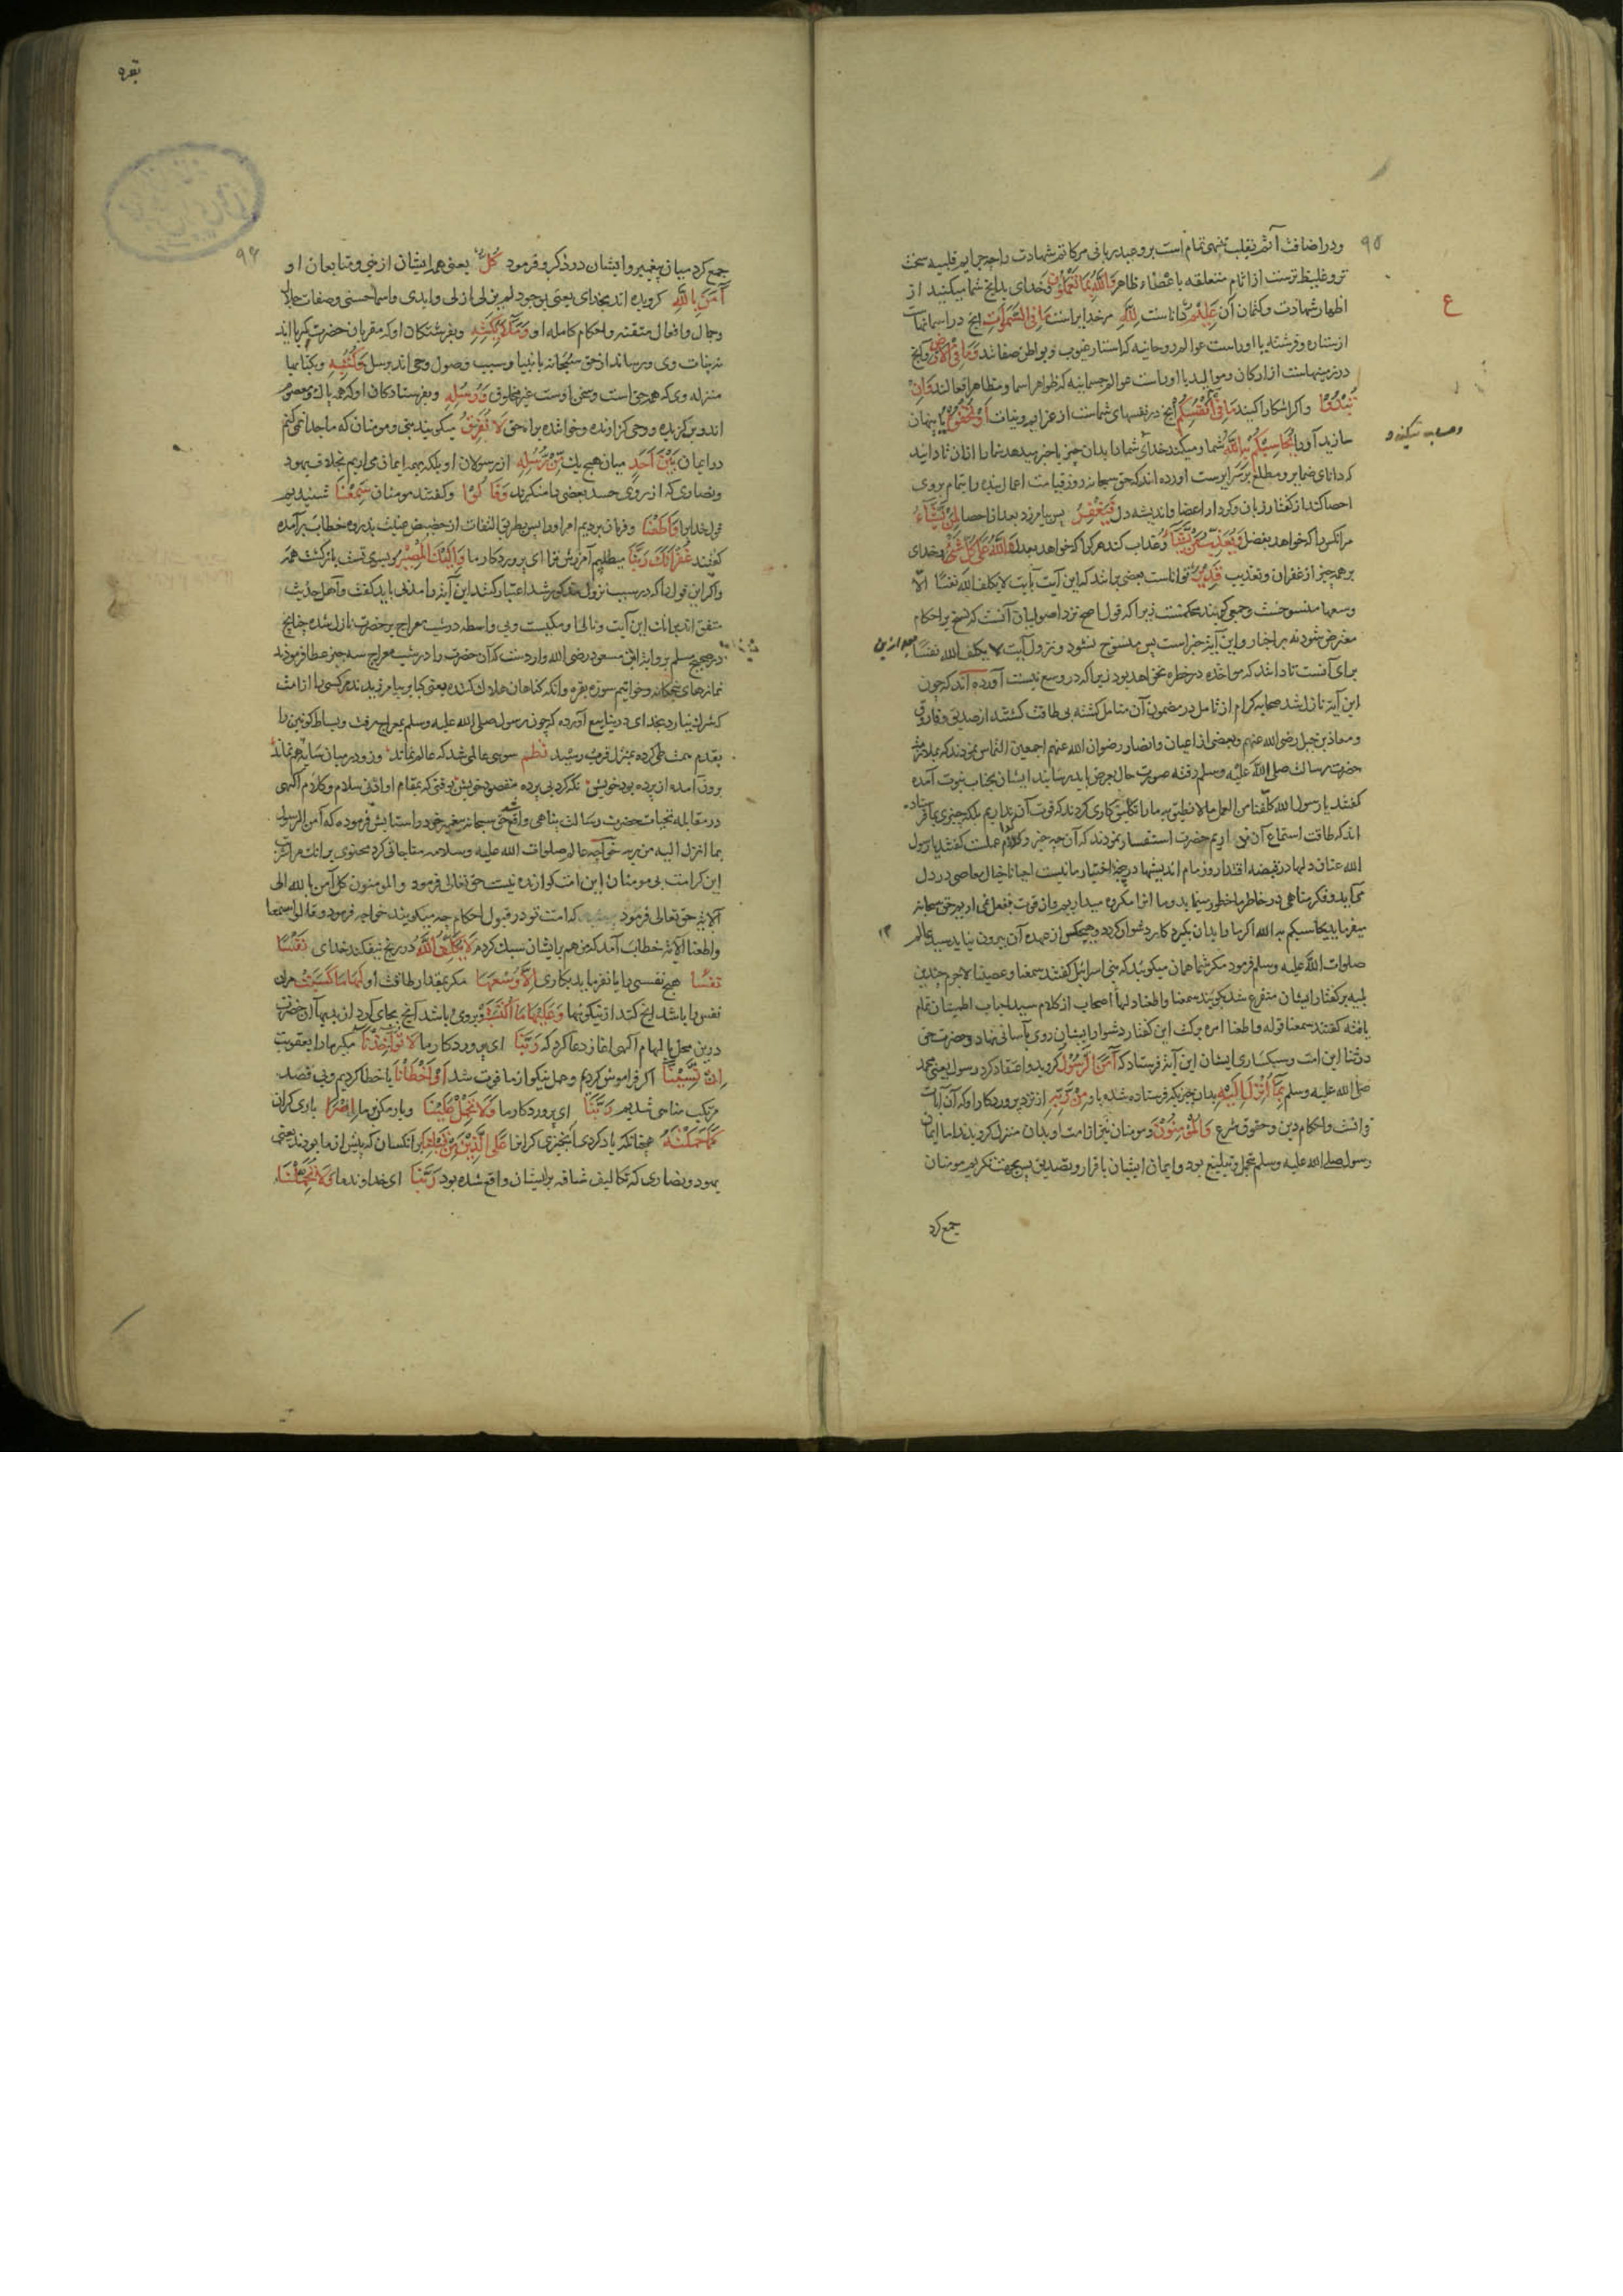 ۹۵
ودر اضافت آثم بقلب تنبیهی تمام است بر وعید ربانی مر کاتم شهادت را چه جرایم قلبیه سخت
تر و غلیظ ترست از اثام متعلقه باعضاء ظاهر وَاللَّهُ بِمَا تَعْمَلُونَ وخدای بدانچ شما میکنید از
اظهار شهادت وکتمان آن عَلِيمٌ داناست لِلَّهِ مر خدایراست مَا فِي السَّمٰوَاتِ انچ در اسمانهاست
از ستاره و فرشته یا اوراست عوالم روحانیه که استار غیوب و بواطن صفاتند وَمَا فِي الْأَرْضِ وانچ
در زمینهاست از ارکان وموالید یا اوراست عوالم جسمانیه که ظواهر اسما و مظاهر افعالند وَإِنْ
تُبْدُوا واگر اشکارا کنید مَا فِي أَنْفُسِكُمْ انچ در نفسهای شماست از عزایم ونیات أَوْ تُخْفُوهُ یا پنهان
سازید آنرا يُحَاسِبْكُمْ بِهِ اللَّهُ شمار میکند خدای شما را بدان چیز یا خبر میدهد شما را از ان تا دانید
که دانای ضمایر و مطلع بر سرایرست اورده اند که حق سبحانه روز قیامت اعمال بنده را بتمام بروی
احصا کند از گفتار زبان وکردار اعضا واندیشه دل فَيَغْفِرُ پس بیامرزد بعد از احصا لِمَنْ يَشَاءُ
مر انکس را که خواهد بفضل وَيُعَذِّبُ مَنْ يَشَاءُ وعذاب کند هر کرا که خواهد بعدل وَاللَّهُ عَلَىٰ كُلِّ شَيْءٍ وخدای
بر همه چیز از غفران وتعذیب قَدِيرٌ تواناست بعضی برانند که این آیت بآیت لا یکلف الله نفسًا الّا
وسعها منسوخست وجمعی گویند محکمست زیرا که قول اصح نزد اصولیان آنست که نسخ بر احکام
معترض شود نه بر اخبار واین آیة خبر است پس منسوخ نشود و نزول آیت لا یکلف الله نفسًا بعد ازین
برای آنست تا دانند که مواخذه در خطره نخواهد بود زیرا که در وسع نیست آورده اند که چون
این آیة نازل شد صحابه کرام از تامل در مضمون آن متامل گشته بی طاقت گشتند از صدیق و فاروق
ومعاذ بن جبل رضی الله عنهم وبعضی از اعیان وانصار رضوان الله عنهم اجمعین التماس نمودند که بملازمت
حضرت رسالت صلی الله علیه وسلم رفته صورت حال بعرض باید رسانید ایشان بجناب نبوت آمده
گفتند یا رسول الله کلّفنا من العمل ما لا نطیق به ما را تکلیف کاری کردند که قوت آن نداریم بلکه چیزی بما فرستاده
اند که طاقت استماع آن نمی اریم حضرت استفسار نمودند که آن چه چیز و کدام عملست گفتند یا رسول
الله عنان دلها در قبضه اقتدار و زمام اندیشها در پنجه اختیار ما نیست احیانا خیال معاصی در دل
می آید وفکر مناهی در خاطر ما خطور مینماید وما انرا مکروه میداریم وان قوت بفعل نمی اریم حق سبحانه
میفرماید یحاسبکم به الله اگر ما را بدان بگیرد کار دشوار گردد وهیچکس از عهده آن بیرون نیاید سید عالم
صلوات الله علیه وسلم فرمود مگر شما همان میگوئید که بنی اسرائیل گفتند سمعنا وعصینا لاجرم چندین
بلیه بر گفتار ایشان متفرع شد بگویند سمعنا واطعنا دلها اصحاب از کلام سید احباب اطمینان تمام
یافته گفتند سمعنا قوله واطعنا امره برکت این گفتار دشوار ایشان روی بآسانی نهاد وحضرت حق
در ثنا این امت وسبکساری ایشان این آیة فرستاد که آمَنَ الرَّسُولُ گروید واعتقاد کرد رسول یعنی محمد
صلی الله علیه وسلم بِمَا أُنْزِلَ إِلَيْهِ بدان چیز که فرستاده شد باو مِنْ رَبِّهِ از نزد پروردگار او که آن آیات
قرانست واحکام دین وحقوق شرع وَالْمُؤْمِنُونَ ومومنان نیز از امت او بدان منزل گرویدند اما ایمان
رسول صلی الله علیه وسلم بحمل وتبلیغ بود وایمان ایشان باقرار وتصدیق پس بجهت تکریم مومنان
جمع کرد
ع
وحساب میکند و
۱۲
بقره
۹۶
جمع کرد میان پیغمبر وایشان در ذکر وفرمود كُلٌّ یعنی همه ایشان از نبی ومتابعان او
آمَنَ بِاللَّهِ گرویده اند بخدای یعنی بوجود لم یزلی ازلی وابدی واسما حسنی وصفات جلال
وجمال وافعال متقنه واحکام کامله او وَمَلَائِكَتِهِ وبفرشتگان او که مقربان حضرت کبریا اند
نه بنات وی ورسانند از حق سبحانه بانبیا وسبب وصول وحی اند برسل وَكُتُبِهِ وبکتابها
منزله وی که همه حق است وسخن اوست غیر مخلوق وَرُسُلِهِ وبفرستادگان او که همه پاک ومعصوم
اند وبرگزیده ووحی گزارنده وخواننده براه حق لَا نُفَرِّقُ میگویند نبی ومومنان که ما جدا نمی کنیم
در ایمان بَيْنَ أَحَدٍ میان هیچ یک مِنْ رُسُلِهِ از رسولان او بلکه بهمه ایمان می اریم بخلاف یهود
ونصاری که از روی حسد بعضی را منکرند وَقَالُوا وگفتند مومنان سَمِعْنَا شنیدیم
قول خدایرا وَأَطَعْنَا وفرمان بردیم امر او را پس بطریق التفات از حضیض غیبت بذروه خطاب برآمده
گفتند غُفْرَانَكَ رَبَّنَا میطلبیم آمرزش ترا ای پروردگار ما وَإِلَيْكَ الْمَصِيرُ وبسوی تست بازگشت همه
واگر این قول را که در سبب نزول مذکور شد اعتبار کنند این آیة را مدنی باید گفت واهل حدیث
متفق اند بر انک این آیت وتالی او مکیست وبی واسطه در شب معراج بر حضرت نازل شده چنانچ
در صحیح مسلم بروایة ابن مسعود رضی الله وارد است که آن حضرت را در شب معراج سه چیز عطا فرمودند
نمازهای پنجگانه وخواتیم سوره بقره وانکه گناهان هلاک کننده یعنی کبایر بیامرزیدند هر کسی را از امت
که شرک نیارد بخدای در ینابیع آورده که چون رسول صلی الله علیه وسلم بمعراج میرفت وبساط کونین را
بقدم همت طی کرده بمنزل قرب رسید نظم سوی عالمی شد که عالم نماند؛ وزو در میان سایه هم نماند
برون آمده از پرده بود خویش؛ نگه کرد بی پرده مقصود خویش بوقتی که بمقام اوادنی سلام وکلام الهی
در مقابله تحیات حضرت رسالت پناهی واقع شد حق سبحانه پیغمبر خود را ستایش فرموده که آمن الرسول
بما انزل الیه من ربه خواجه عالم صلوات الله علیه وسلامه مناجاتی کرد محتوی بر انک مرا شرب
این کرامت بی مومنان این امت گوارنده نیست حق تعالی فرمود والمومنون کل آمن بالله الی
آلایة حق تعالی فرمود که امت تو در قبول احکام چه میگویند خواجه فرمود وقالوا سمعنا
واطعنا الایة خطاب آمد که من هم بر ایشان سبک کردم لَا يُكَلِّفُ اللَّهُ در رنج نیفکند خدای نَفْسًا
نَفْسًا هیچ نفسی را یا نفرماید بکاری إِلَّا وُسْعَهَا مگر بمقدار طاقت او لَهَا مَا كَسَبَتْ مر ان
نفس را باشد انچ کند از نیکوئیها وَعَلَيْهَا مَا اكْتَسَبَتْ وبروی باشد آنچ بجای آرد از بدیها آن حضرت
درین محل بالهام الهی اغاز دعا کرد که رَبَّنَا ای پروردگار ما لَا تُؤَاخِذْنَا مگیر ما را بعقوبت
إِنْ نَسِينَا اگر فراموش کردیم وعمل نیکو از ما فوت شد أَوْ أَخْطَأْنَا یا خطا کردیم وبی قصد
مرتکب مناهی شدیم رَبَّنَا ای پروردگار ما وَلَا تَحْمِلْ عَلَيْنَا وبار مکن بر ما إِصْرًا باری گران
كَمَا حَمَلْتَهُ همچنانکه بار کردی آنچنزی گرانرا عَلَى الَّذِينَ مِنْ قَبْلِنَا بر انکسان که پیش از ما بودند یعنی
یهود ونصاری که تکالیف شاقه بر ایشان واقع شده بود رَبَّنَا ای خداوند ما وَلَا تُحَمِّلْنَا